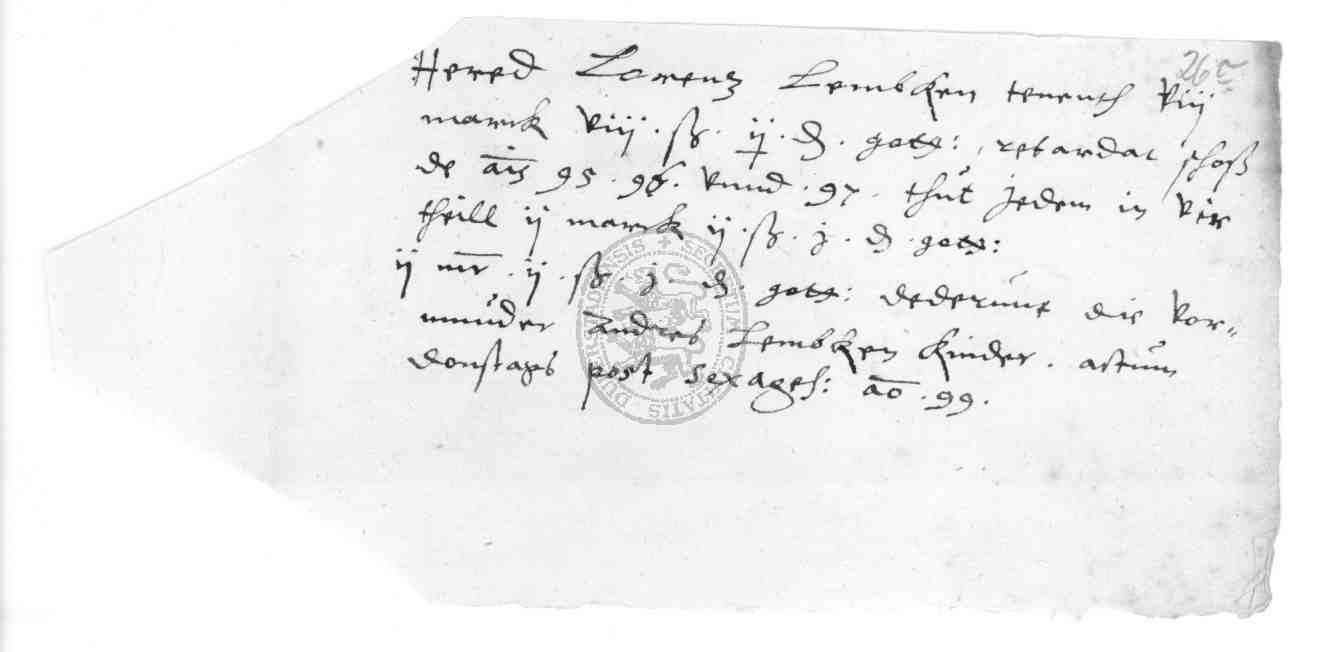 26c
Hered Lorentz Lembken tenenth viij
marck viij . ß . ij . d . gotg: retardat schoß
de ais 95 . 96 . vnnd . 97 . thut jedem in vir
theill ij marck ij . ß . j . d . gotg:
ij mr . ij . ß . j . d . gotg: dederunt die vor=
munder Andres Lembken Kinder . actum
donstags post sexages: ao . 99 .
SIGILLUM CIVITATIS